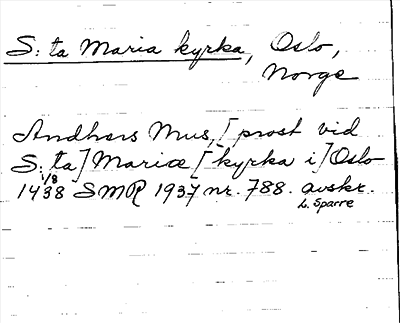 S:ta Maria kyrka, Oslo,
Norge
Andhors Mus, [prost vid
S:ta] Mariæ [kyrka i] Oslo
1/8
1438 SMR 1937 nr. 788. avskr.
L. Sparre